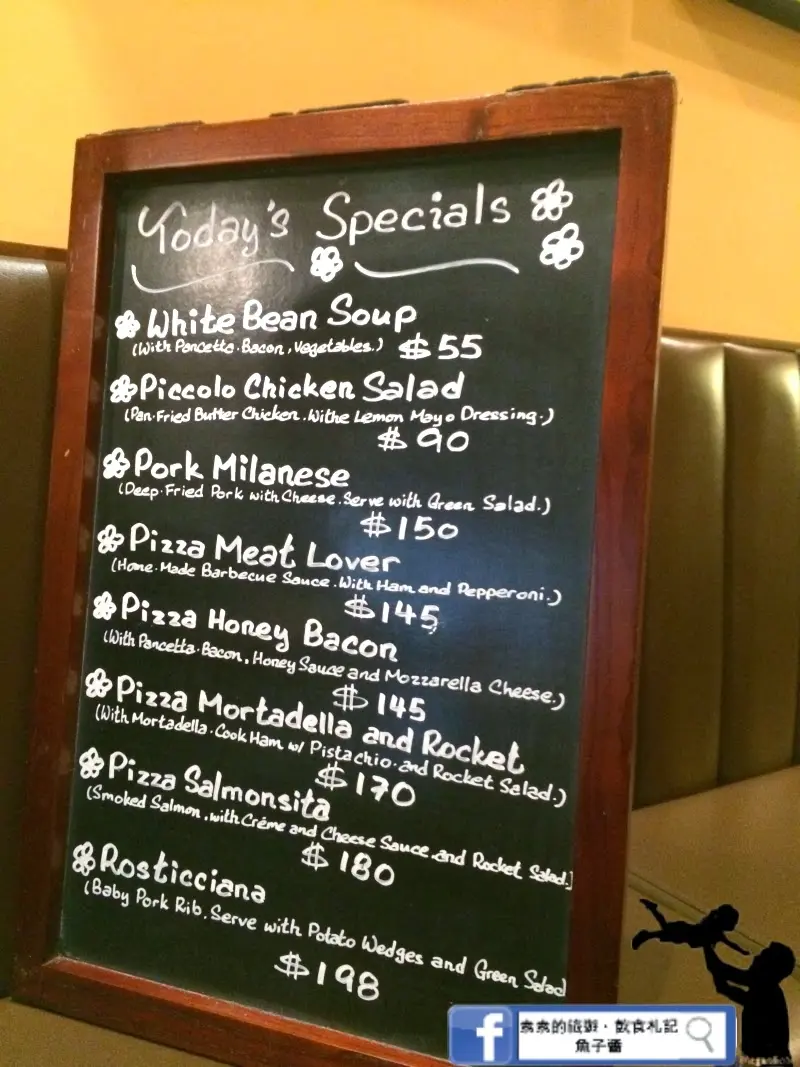 Today's Specials
White Bean Soup
(With Pancetta. Bacon, Vegetables.) $55
Piccolo Chicken Salad
(Pan-Fried Butter Chicken. Withe Lemon Mayo Dressing.)
$90
Pork Milanese
(Deep-Fried Pork with Cheese. Serve with Green Salad.)
$150
Pizza Meat Lover
(Home-Made Barbecue Sauce. With Ham and Pepperoni.)
$145
Pizza Honey Bacon
(With Pancetta. Bacon, Honey Sauce and Mozzarella Cheese.)
$145
Pizza Mortadella and Rocket
(With Mortadella. Cook Ham w/ Pistachio. and Rocket Salad.)
$170
Pizza Salmonsita
(Smoked Salmon, with Créme and Cheese Sauce and Rocket Salad.)
$180
Rosticciana
(Baby Pork Rib. Serve with Potato Wedges and Green Salad
$198
f
的旅遊．飲食札記
魚子醬